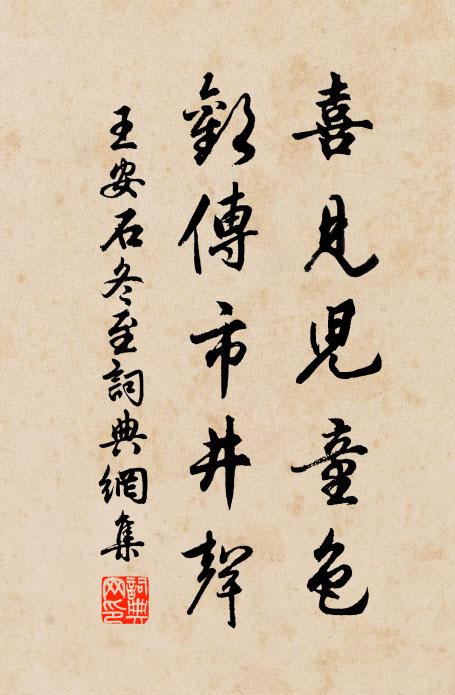 喜見兒童色
歡傳市井聲
王安石冬至詞典網集
詞典網印